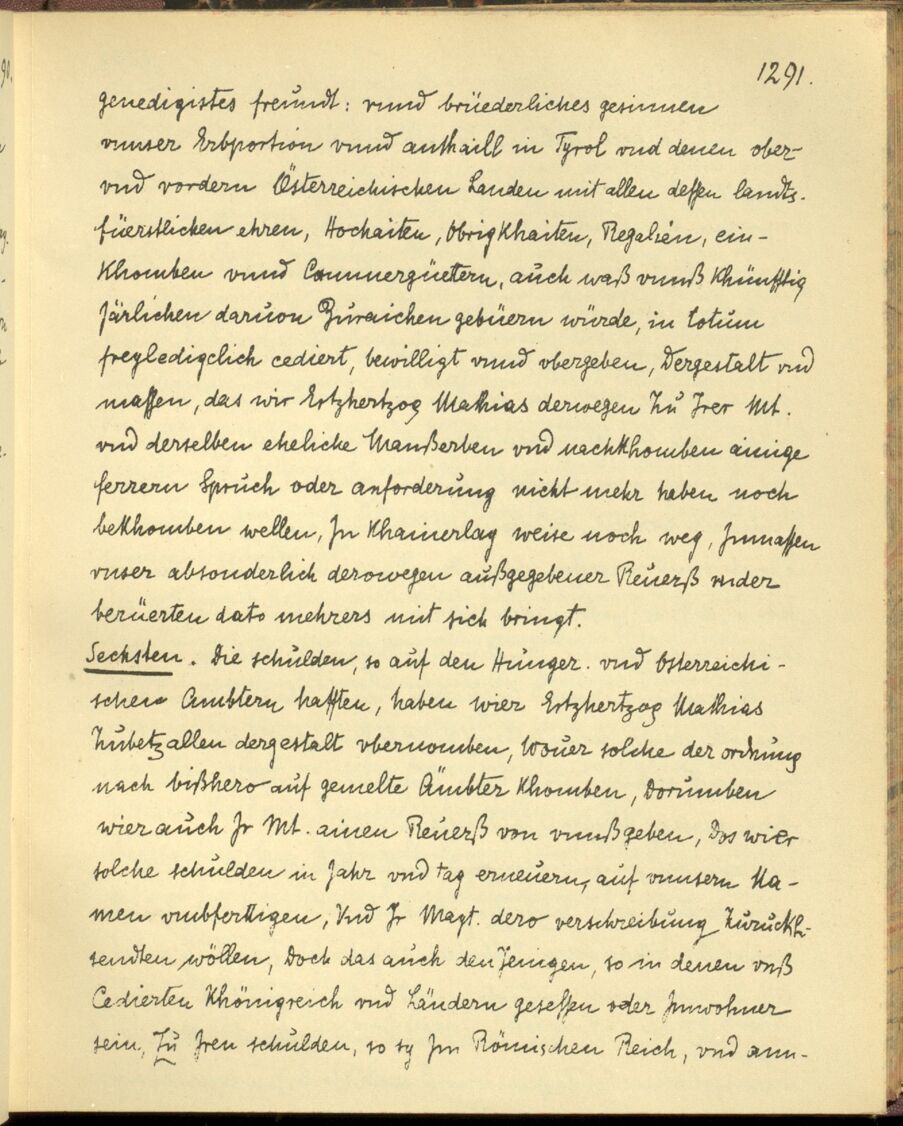 1291.
genedigistes freundt: vnnd brüederliches gesinnen
vnnser Erbportion vnnd anthaill in Tyrol vnd denen ober-
vnd vordern Österreichischen Landen mit allen dessen landts-
füerstlichen ehren, Hochaiten, Obrigkhaiten, Regalien, ein-
Khomben vnnd Cammergüetern, auch waß vnnß Khünfftig
Järlichen daruon Zuraichen gebüern würde, in totum
freyledigclich cediert, bewilligt vnnd vbergeben, Dergestalt vnd
massen, das wir Ertzhertzog Mathias derwegen Zu Irer Mt.
vnd derselben eheliche Manßerben vnd nachKhomben ainige
ferrern Spruch oder anforderung nicht mehr haben noch
beKhomben wellen, In Khainerlay weise noch weg, Inmassen
vnser absonderlich derowegen außgegebener Reuerß vnder
berüerten dato mehrers mit sich bringt.
Sechsten. Die schulden, so auf den Hunger. vnd Österreichi-
schen Ambtern hafften, haben wier Ertzhertzog Mathias
Zubetzallen dergestalt vbernomben, Wouer solche der ordnung
nach bißhero auf gemelte Ämbter Khomben, Dorumben
wier auch Ir Mt. ainen Reuerß von vnnß geben, Das wier
solche schulden in Jahr vnd tag erneuern, auf vnnsern Na-
men vmbferttigen, Vnd Ir Mayt. dero verschreibung Zuruckh-
sendten wöllen, Doch das auch den Jenigen, so in denen vnß
Cedierten Khönigreich vnd Ländern gesessen oder Innwohner
sein, Zu Iren schulden, so sy Im Römischen Reich, vnd ann-